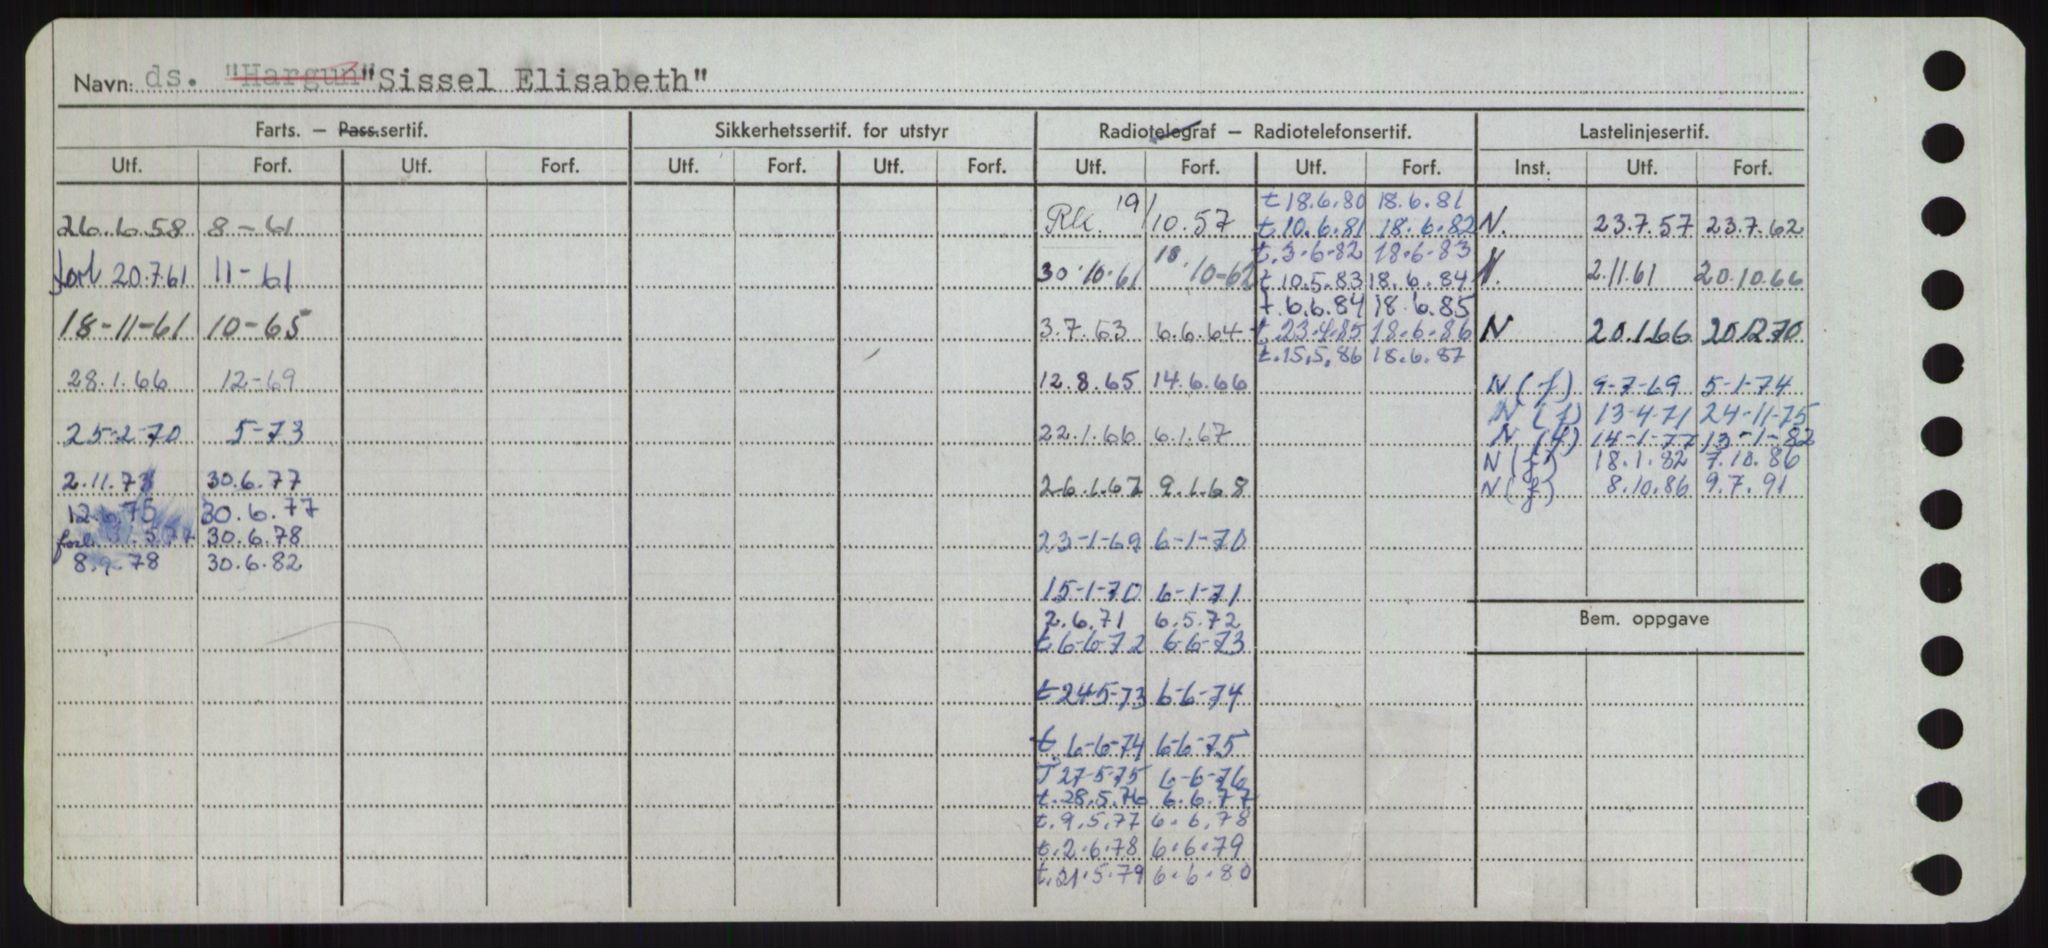 Navn: ds. "Hargun" "Sissel Elisabeth"
Farts. — Pass.sertif. Sikkerhetssertif. for utstyr Radiotelegraf — Radiotelefonsertif. Lastelinjesertif.
Utf. Forf. Utf. Forf. Utf. Forf. Utf. Forf. Utf. Forf. Utf. Forf. Inst. Utf. Forf.
26.6.58 8-61
forl 20.7.61 11-61
18-11-61 10-65
28.1.66 12-69
25-2-70 5-73
2.11.73 30.6.77
12.6.75 30.6.77
forl. 5.77 30.6.78
8.9.78 30.6.82
Rk. 19/10.57
30.10.61 18.10-62
3.7.63 6.6.64
12.8.65 14.6.66
22.1.66 6.1.67
26.1.67 9.1.68
23-1-69 6-1-70
15-1-70 6-1-71
2.6.71 6.5.72
t 6-6-72 6-6-73
t 24-5-73 6-6-74
t. 6-6-74 6-6-75
T 27-5-75 6-6-76
t. 28.5.76 6.6.77
t. 9.5.77 6.6.78
t. 2.6.78 6.6.79
t. 21.5.79 6.6.80
t 18.6.80 18.6.81
t. 10.6.81 18.6.82
t. 3.6.82 18.6.83
t 10.5.83 18.6.84
t. 6.6.84 18.6.85
t. 23.4.85 18.6.86
t. 15.5.86 18.6.87
N. 23.7.57 23.7.62
N. 2.11.61 20.10.66
N 20.1.66 20.12.70
N (f) 9-7-69 5-1-74
N (f) 13-4-71 24-11-75
N (f) 14-1-77 13-1-82
N (f) 18.1.82 7.10.86
N (f) 8.10.86 9.7.91
Bem. oppgave